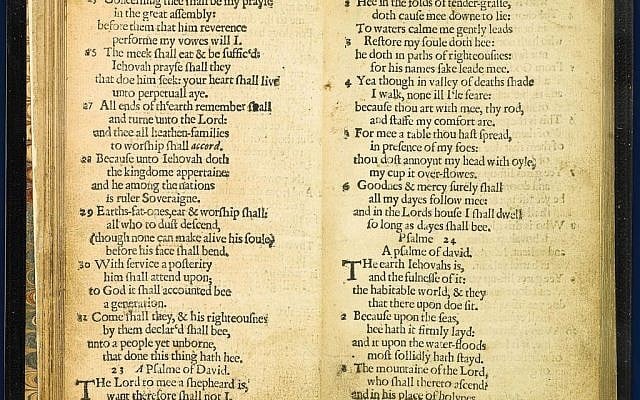 25 Concerning thee shall be my prayse
in the great assembly:
before them that him reverence
performe my vowes will I.
25 The meek shall eat & be suffic'd:
Iehovah prayse shall they
that doe him seek: your heart shall live
unto perpetuall aye.
27 All ends of th'earth remember shall
and turne unto the Lord:
and thee all heathen-families
to worship shall accord.
28 Because unto Iehovah doth
the kingdome appertaine:
and he among the nations
is ruler Soveraigne.
29 Earths-fat-ones, eat & worship shall:
all who to dust descend,
(though none can make alive his soule)
before his face shall bend.
30 With service a posterity
him shall attend upon;
to God it shall accounted bee
a generation.
31 Come shall they, & his righteousnes
by them declar'd shall bee,
unto a people yet unborne,
that done this thing hath hee.
23 A Psalme of David.
THe Lord to mee a shepheard is,
want therefore shall not I.
2 Hee in the folds of tender-grasse,
doth cause mee downe to lie:
To waters calme me gently leads
3 Restore my soule doth hee:
he doth in paths of righteousnes:
for his names sake leade mee.
4 Yea though in valley of deaths shade
I walk, none ill I'le feare:
because thou art with mee, thy rod,
and staffe my comfort are.
5 For mee a table thou hast spread,
in presence of my foes:
thou dost annoynt my head with oyle,
my cup it over-flowes.
6 Goodnes & mercy surely shall
all my dayes follow mee:
and in the Lords house I shall dwell
so long as dayes shall bee.
Psalme 24
A psalme of david.
THe earth Iehovahs is,
and the fulnesse of it:
the habitable world, & they
that there upon doe sit.
2 Because upon the seas,
hee hath it firmly layd:
and it upon the water-floods
most sollidly hath stayd.
3 The mountaine of the Lord,
who shall thereto ascend?
and in his place of holynes,